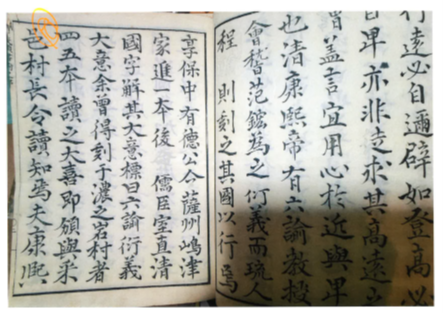 行遠必自邇辟如登高必
自卑亦非速求其高遠
蓋言宜用心於近與卑
也清康熙帝有六諭教授
會稽范鋐為之衍義而琉人
程 則刻之其國以行焉
享保中有德公令薩州嶋津
家進一本後 儒臣室直清
國字解其大意標曰六諭衍義
大意余曾得刻于濃之岩村者
四五本讀之大喜即頒與采
邑村長令讀知焉夫康熙